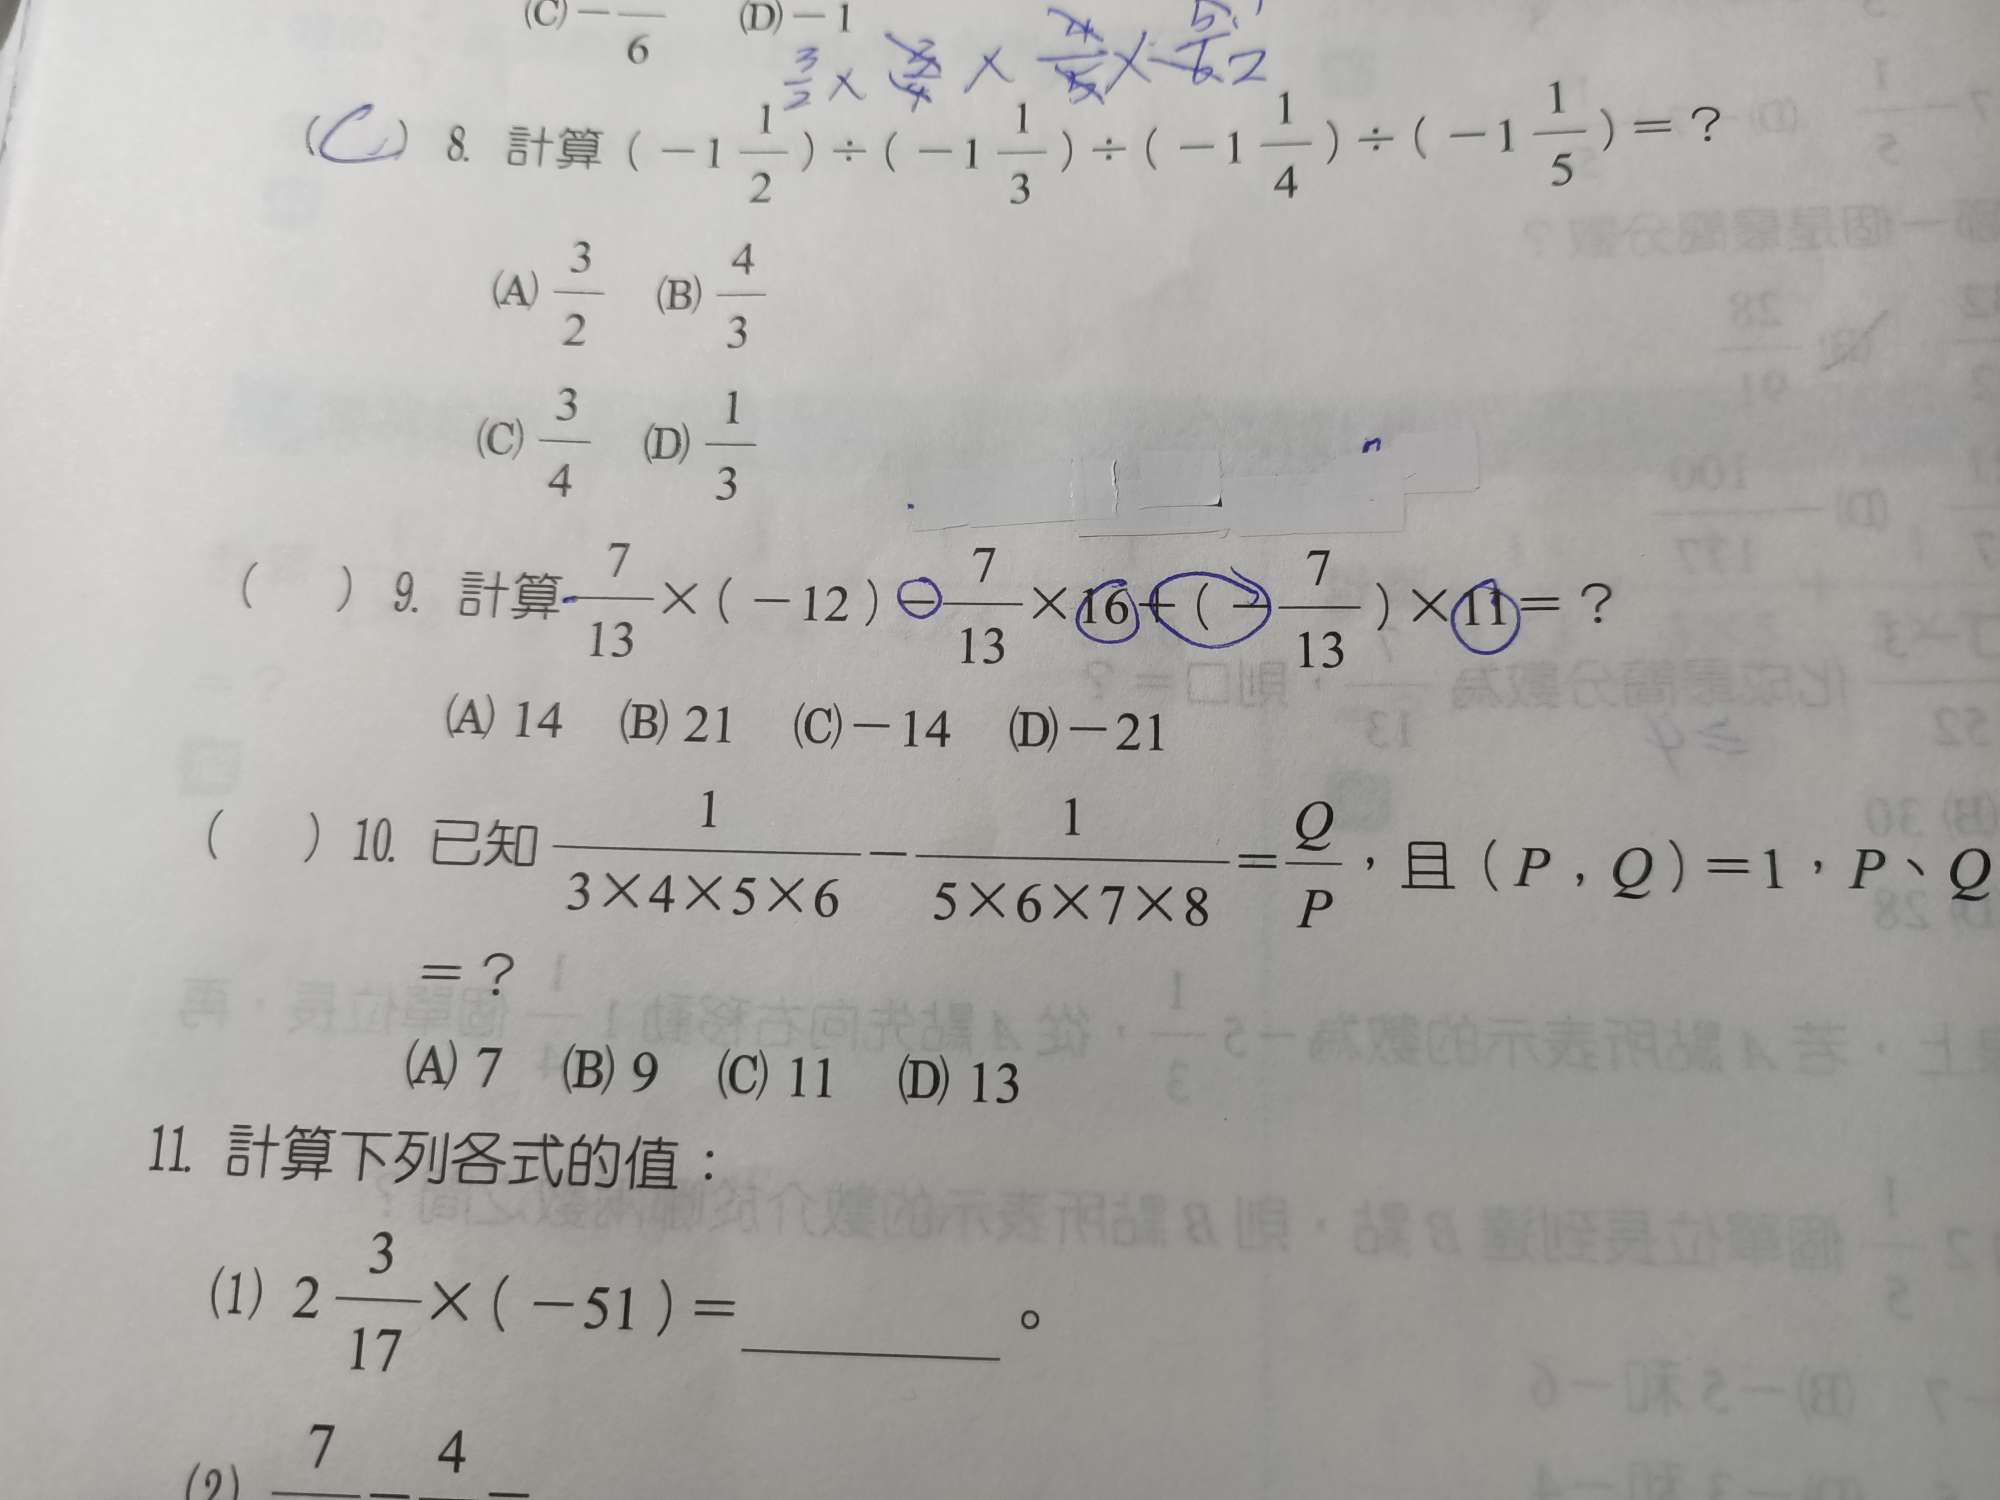 (C) − —/6 (D) −1
3/2 × 3/4 × 4/5 × 5/6 2
(C) 8. 計算 (−1 1/2) ÷ (−1 1/3) ÷ (−1 1/4) ÷ (−1 1/5) = ?
(A) 3/2 (B) 4/3
(C) 3/4 (D) 1/3
( ) 9. 計算 7/13 × (−12) − 7/13 × 16 + (−7/13) × 11 = ?
(A) 14 (B) 21 (C) −14 (D) −21
( ) 10. 已知 1/(3×4×5×6) − 1/(5×6×7×8) = Q/P,且 (P, Q) = 1,P、Q
= ?
(A) 7 (B) 9 (C) 11 (D) 13
11. 計算下列各式的值:
(1) 2 3/17 × (−51) = ______。
(2) 7 − 4 −